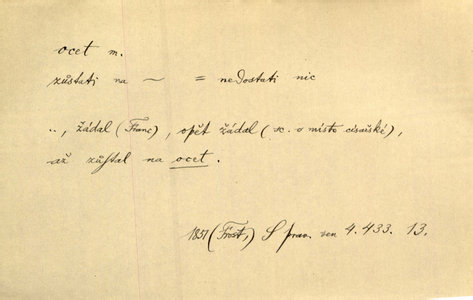 ocet m.
zůstati na ~ = nedostati nic
.., žádal (Franc), opět žádal (sc. o místo císařské),
až zůstal na ocet.
1837 (Frost,) S prav. ven 4. 433. 13.